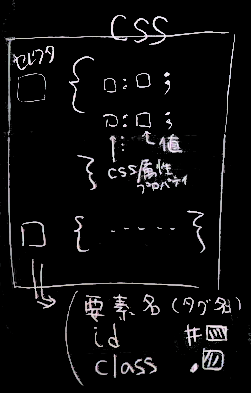 CSS
セレクタ
□ { □:□;
□:□;
値
} CSS属性
プロパティ
□ { ······ }
要素名(タグ名)
id #▨
class .▨